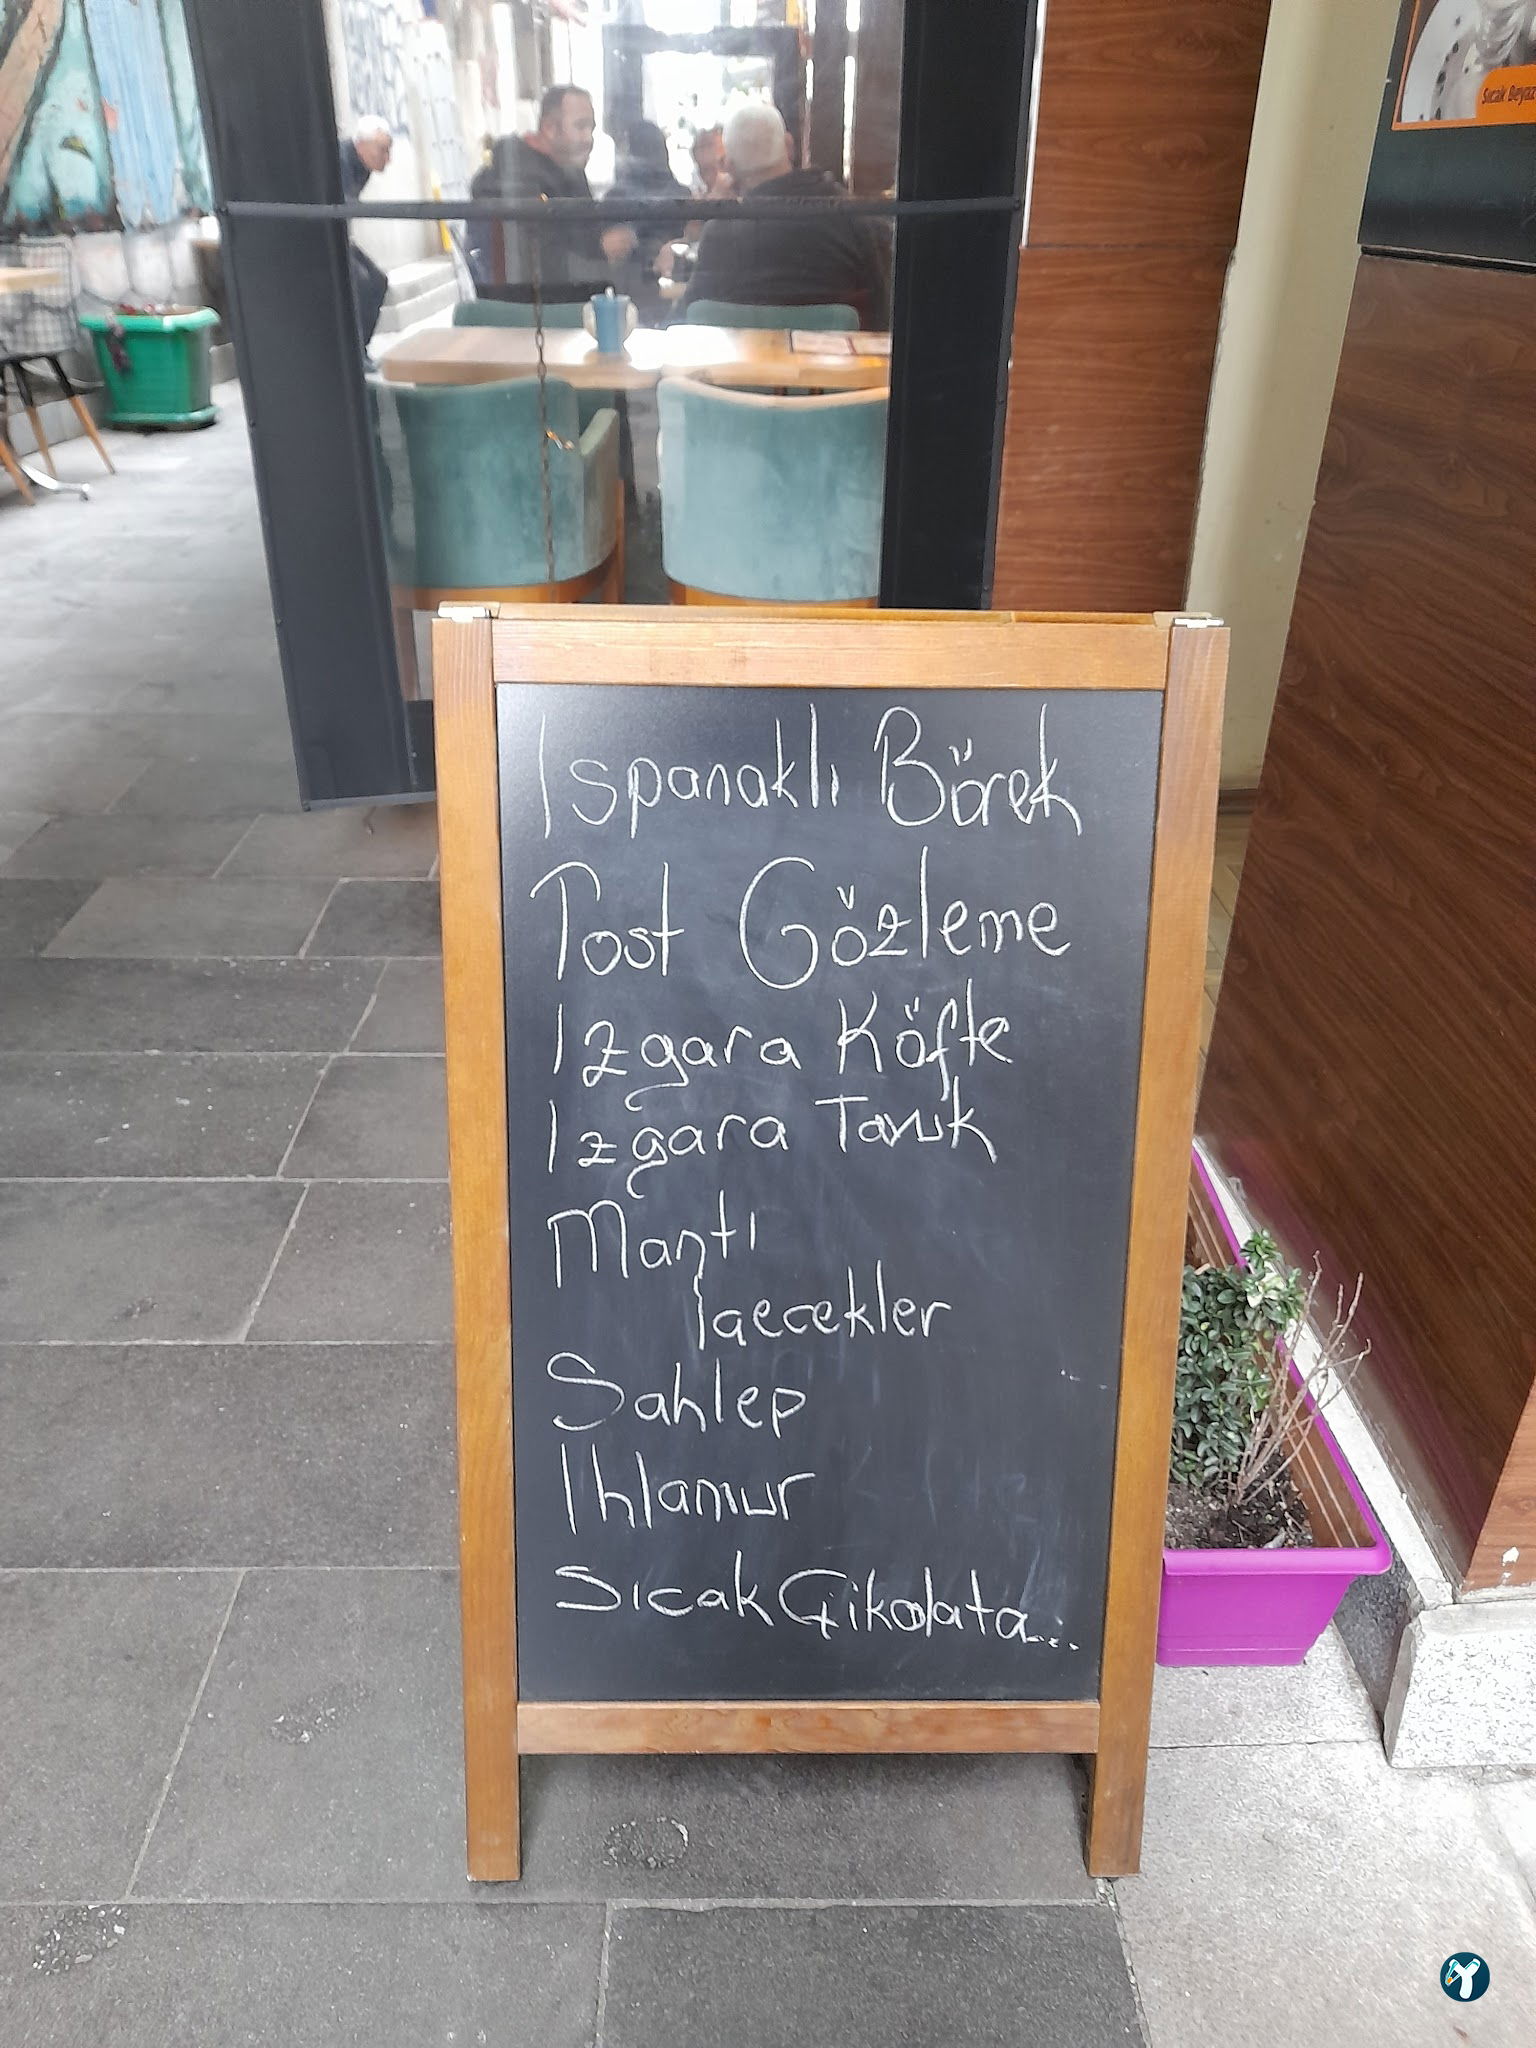 Sıcak Beyaz
Ispanaklı Börek
Tost Gözleme
Izgara Köfte
Izgara Tavuk
Mantı
Iaecekler
Sahlep
Ihlamur
Sıcak Çikolata...